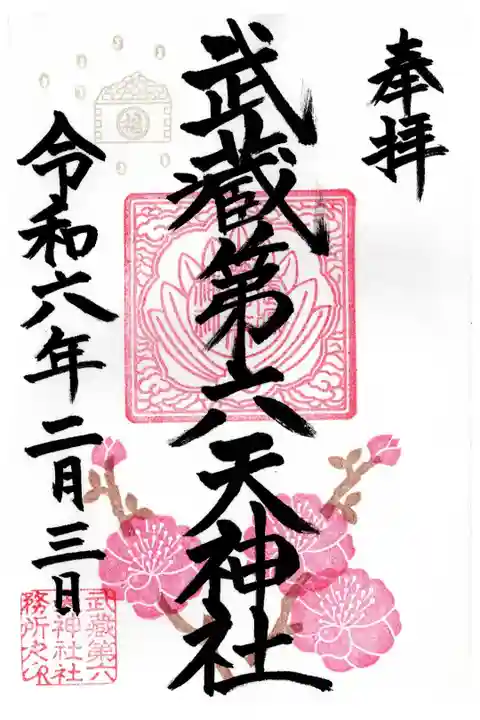 奉拝
武蔵第六天神社
令和六年二月三日
福
武蔵第六
天神社社
務所之印